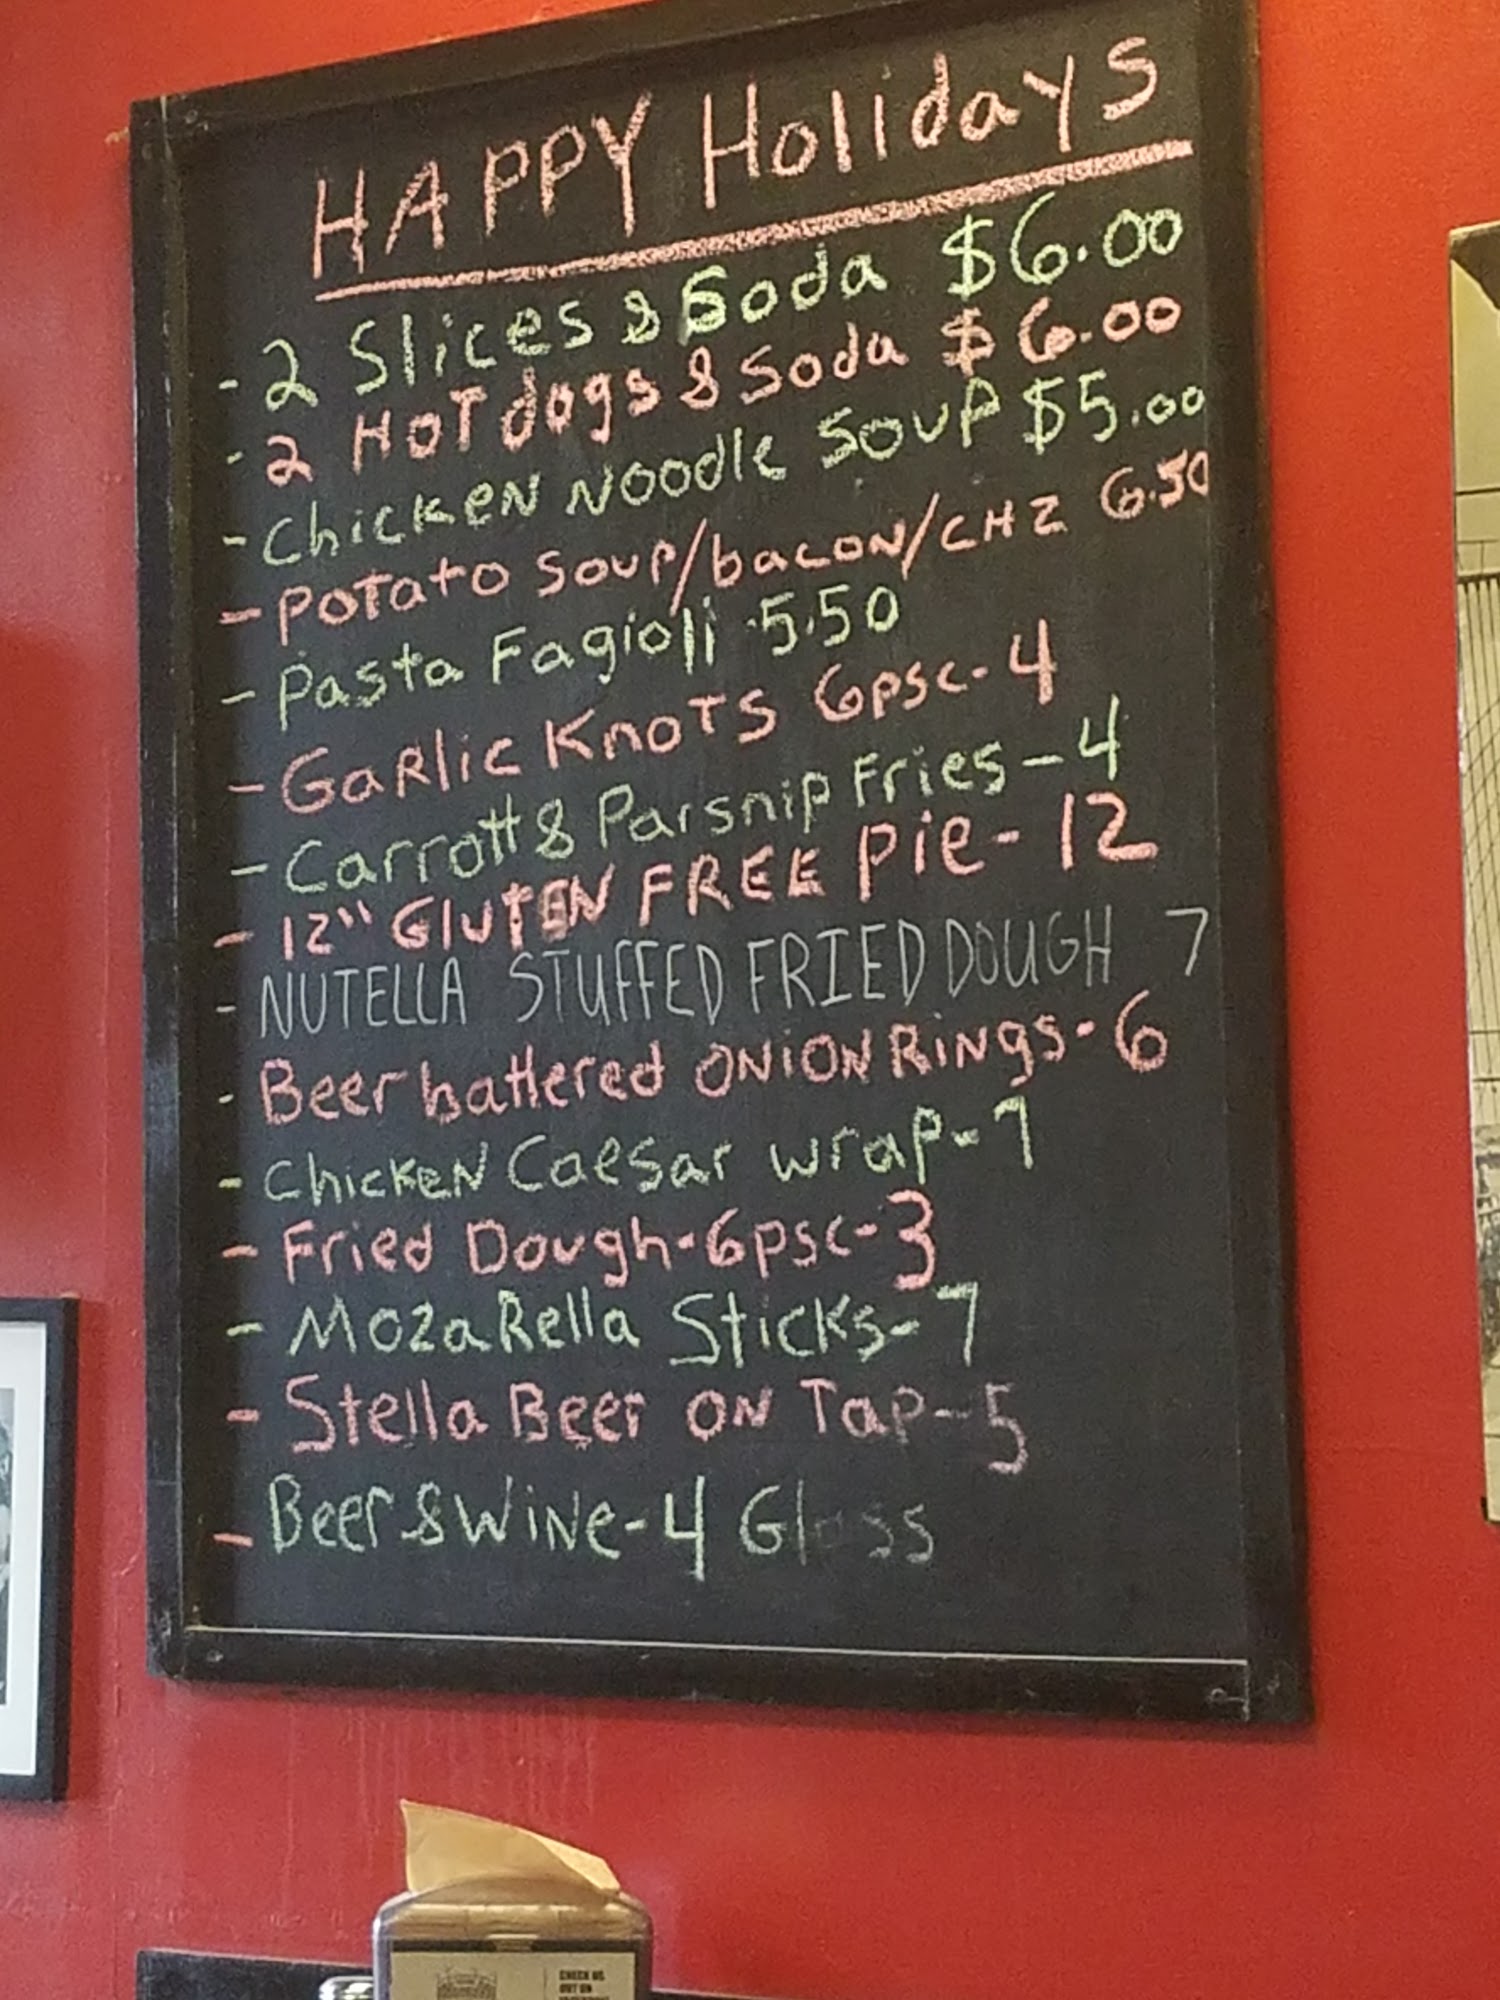 HAPPY Holidays
- 2 Slices & Soda $6.00
- 2 HOT dogs & Soda $6.00
- Chicken Noodle Soup $5.00
- Potato Soup/bacon/CHZ 6.50
- Pasta Fagioli 5.50
- Garlic Knots 6psc - 4
- Carrott & Parsnip Fries - 4
- 12" GLUTEN FREE Pie - 12
- NUTELLA STUFFED FRIED DOUGH 7
- Beer battered ONION RINgs - 6
- Chicken Caesar wrap - 7
- Fried Dough - 6psc - 3
- MozaRella Sticks - 7
- Stella Beer ON Tap - 5
- Beer & Wine - 4 Glass
CHECK US
OUT ON